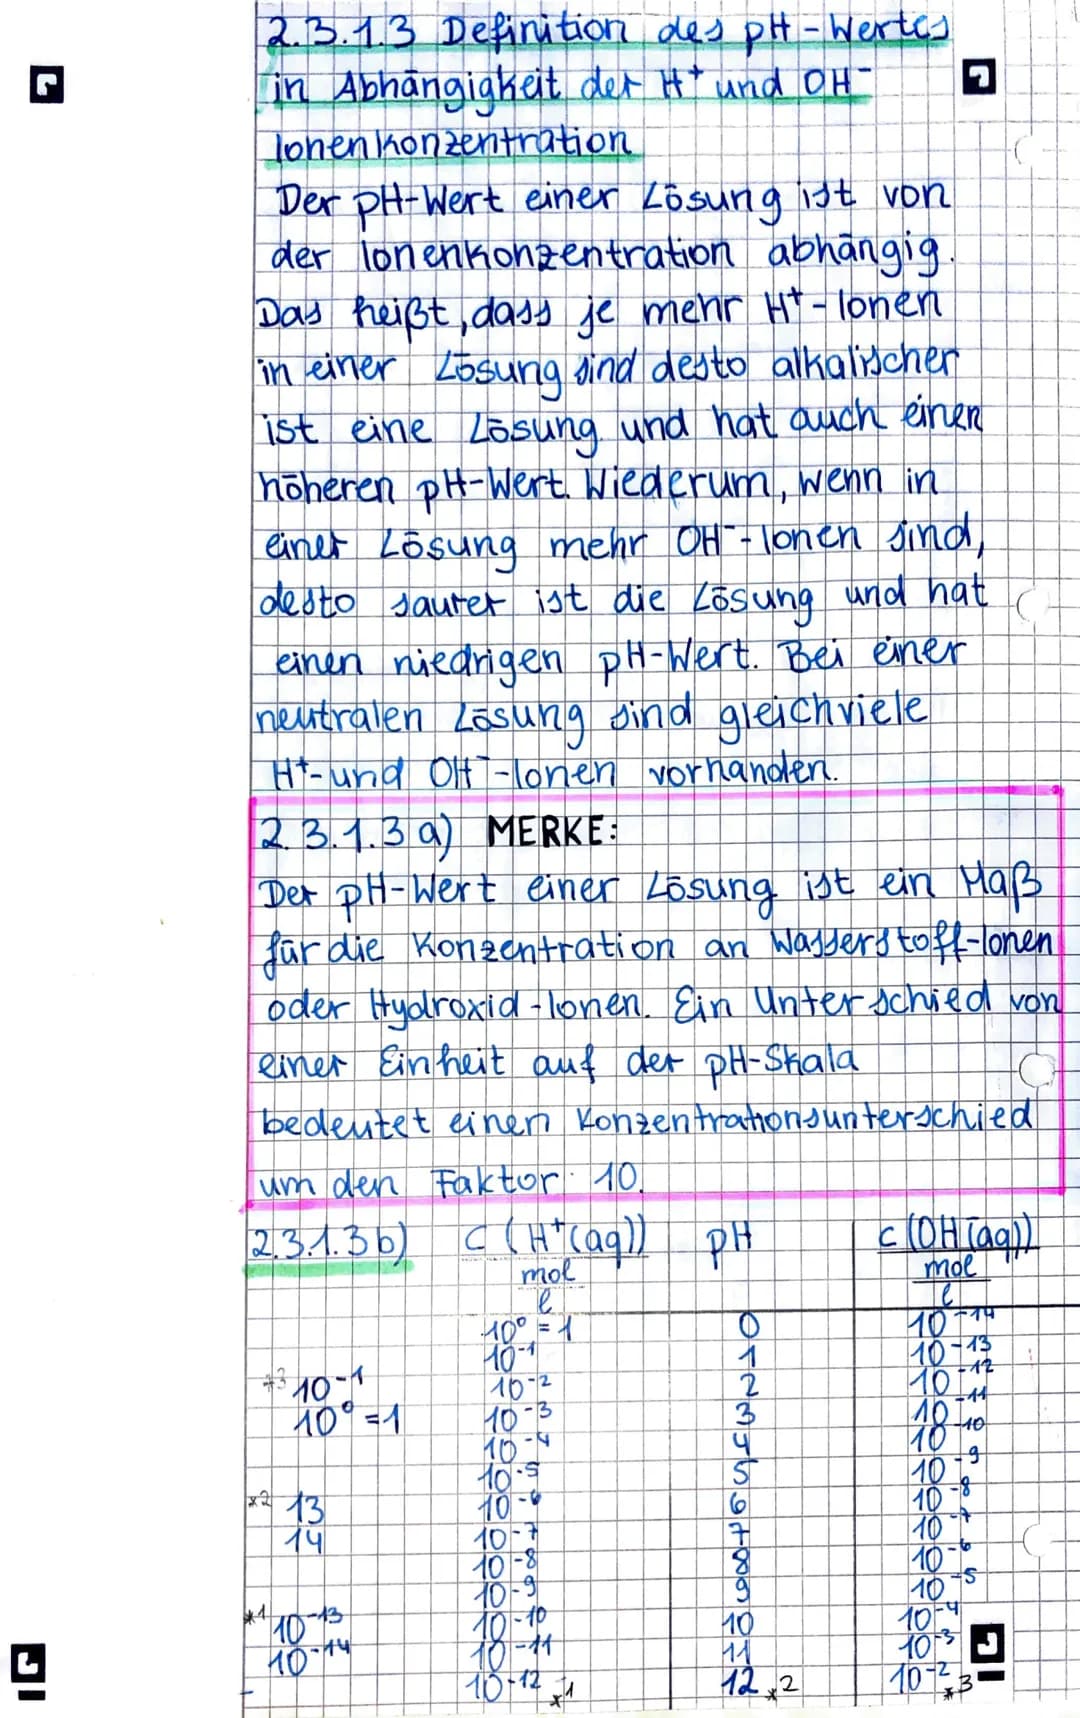 2.3.1.3 Definition des pH-Wertes
in Abhängigkeit der H⁺ und OH⁻
Ionenkonzentration
Der pH-Wert einer Lösung ist von
der Ionenkonzentration abhängig.
Das heißt, dass je mehr H⁺-Ionen
in einer Lösung sind desto alkalischer
ist eine Lösung und hat auch einen
höheren pH-Wert. Wiederum, wenn in
einer Lösung mehr OH⁻-Ionen sind,
desto saurer ist die Lösung und hat
einen niedrigen pH-Wert. Bei einer
neutralen Lösung sind gleichviele
H⁺-und OH⁻-Ionen vorhanden.
2.3.1.3 a) MERKE:
Der pH-Wert einer Lösung ist ein Maß
für die Konzentration an Wasserstoff-Ionen
oder Hydroxid-Ionen. Ein Unterschied von
einer Einheit auf der pH-Skala
bedeutet einen Konzentrationsunterschied
um den Faktor 10.
2.3.1.3 b) c (H⁺(aq)) pH c (OH⁻(aq))
mol mol
l l
10⁰ = 1 0 10⁻¹⁴
10⁻¹ 1 10⁻¹³
*3 10⁻¹ 10⁻² 2 10⁻¹²
10⁰ = 1 10⁻³ 3 10⁻¹¹
10⁻⁴ 4 10⁻¹⁰
10⁻⁵ 5 10⁻⁹
*2 13 10⁻⁶ 6 10⁻⁸
14 10⁻⁷ 7 10⁻⁷
10⁻⁸ 8 10⁻⁶
10⁻⁹ 9 10⁻⁵
*1 10⁻¹³ 10⁻¹⁰ 10 10⁻⁴
10⁻¹⁴ 10⁻¹¹ 11 10⁻³
10⁻¹² *1 12 *2 10⁻² *3